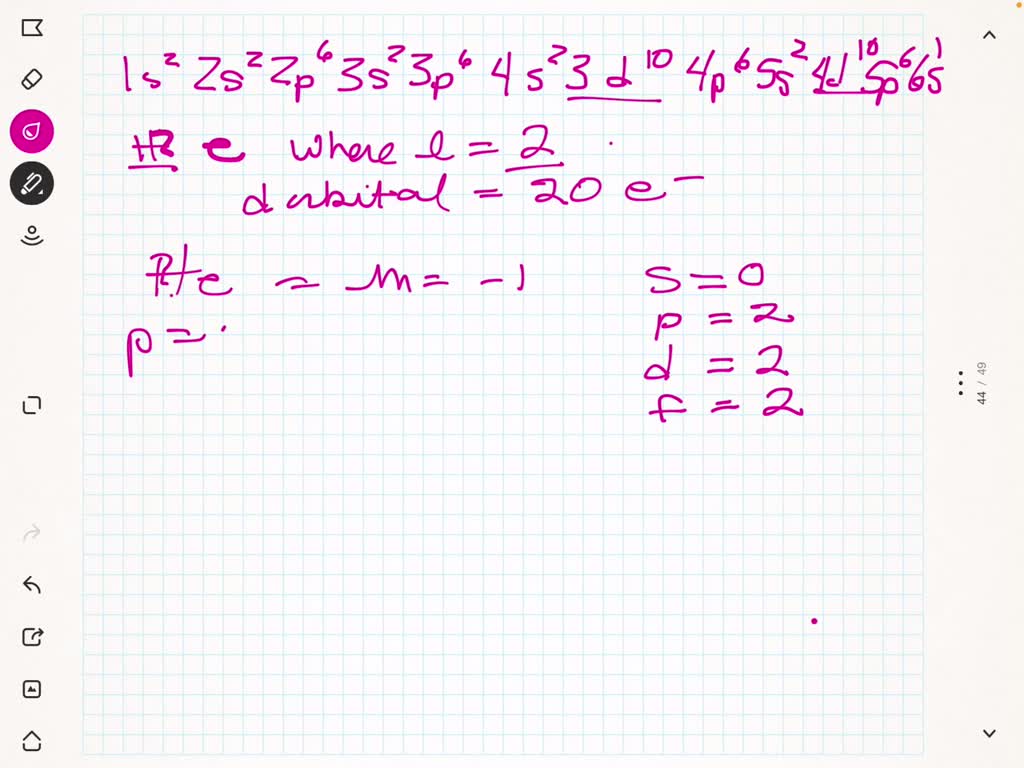 1s² 2s² 2p⁶ 3s² 3p⁶ 4s² 3d¹⁰ 4p⁶ 5s² 4d¹⁰ 5p⁶ 6s¹
# e where l = 2
d orbital = 20 e⁻
# e = m = -1
p =
s = 0
p = 2
d = 2
f = 2
44 / 49